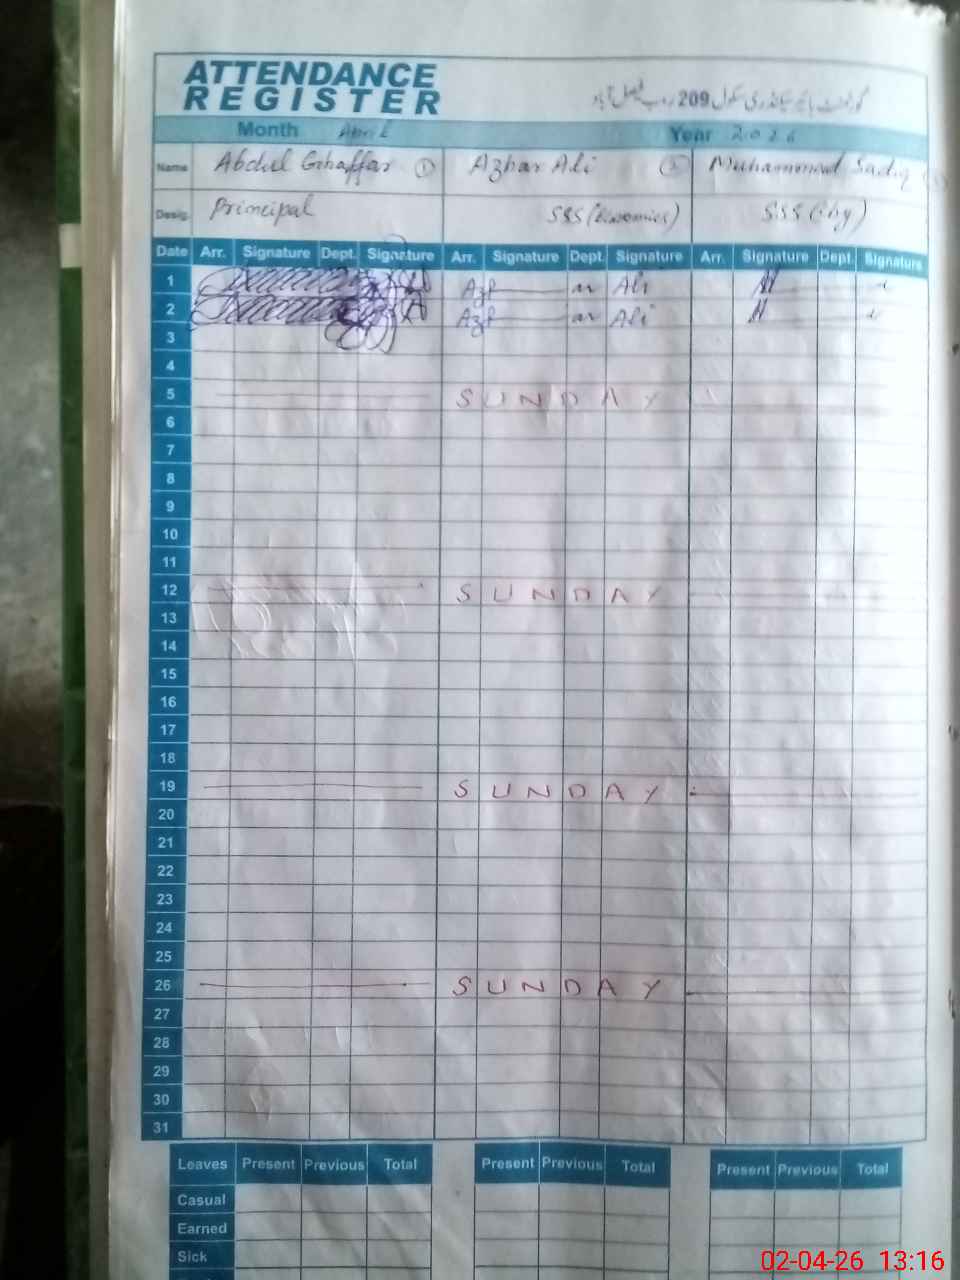 ATTENDANCE
REGISTER
گورنمنٹ ہائیر سیکنڈری سکول 209 ر ب فیصل آباد
Month April Year 2026
Name Abdul Ghaffar ① Azhar Ali ② Muhammad Sadiq
Desig. Principal SSS (Economics) SSS
Date Arr. Signature Dept. Signature Arr. Signature Dept. Signature Arr. Signature Dept. Signature
1 Ali
2 Ali
3
4
5 SUNDAY
6
7
8
9
10
11
12 SUNDAY
13
14
15
16
17
18
19 SUNDAY
20
21
22
23
24
25
26 SUNDAY
27
28
29
30
31
Leaves Present Previous Total Present Previous Total Present Previous Total
Casual
Earned
Sick
02-04-26 13:16